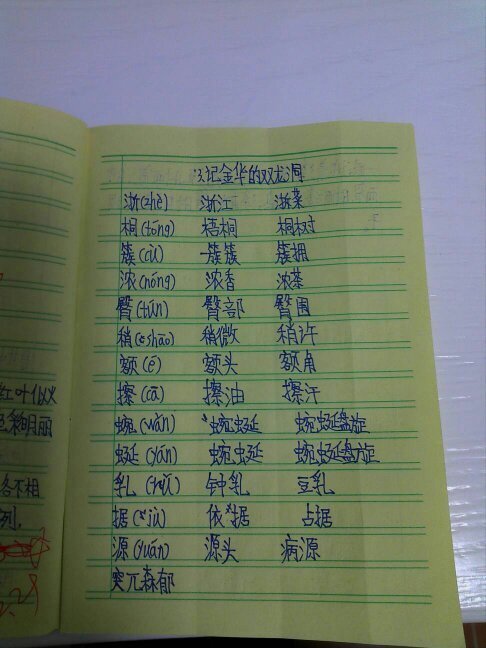 3.记金华的双龙洞
浙(zhè) 浙江 浙菜
桐(tóng) 梧桐 桐树
簇(cù) 一簇簇 簇拥
浓(nóng) 浓香 浓茶
臀(tún) 臀部 臀围
稍(shāo) 稍微 稍许
额(é) 额头 额角
擦(cā) 擦油 擦汗
蜿(wān) 蜿蜒 蜿蜒盘旋
蜒(yán) 蜿蜒 蜿蜒盘旋
乳(rǔ) 钟乳 豆乳
据(jù) 依据 占据
源(yuán) 源头 病源
突兀森郁
红叶似火
色彩明丽
各不相
列.